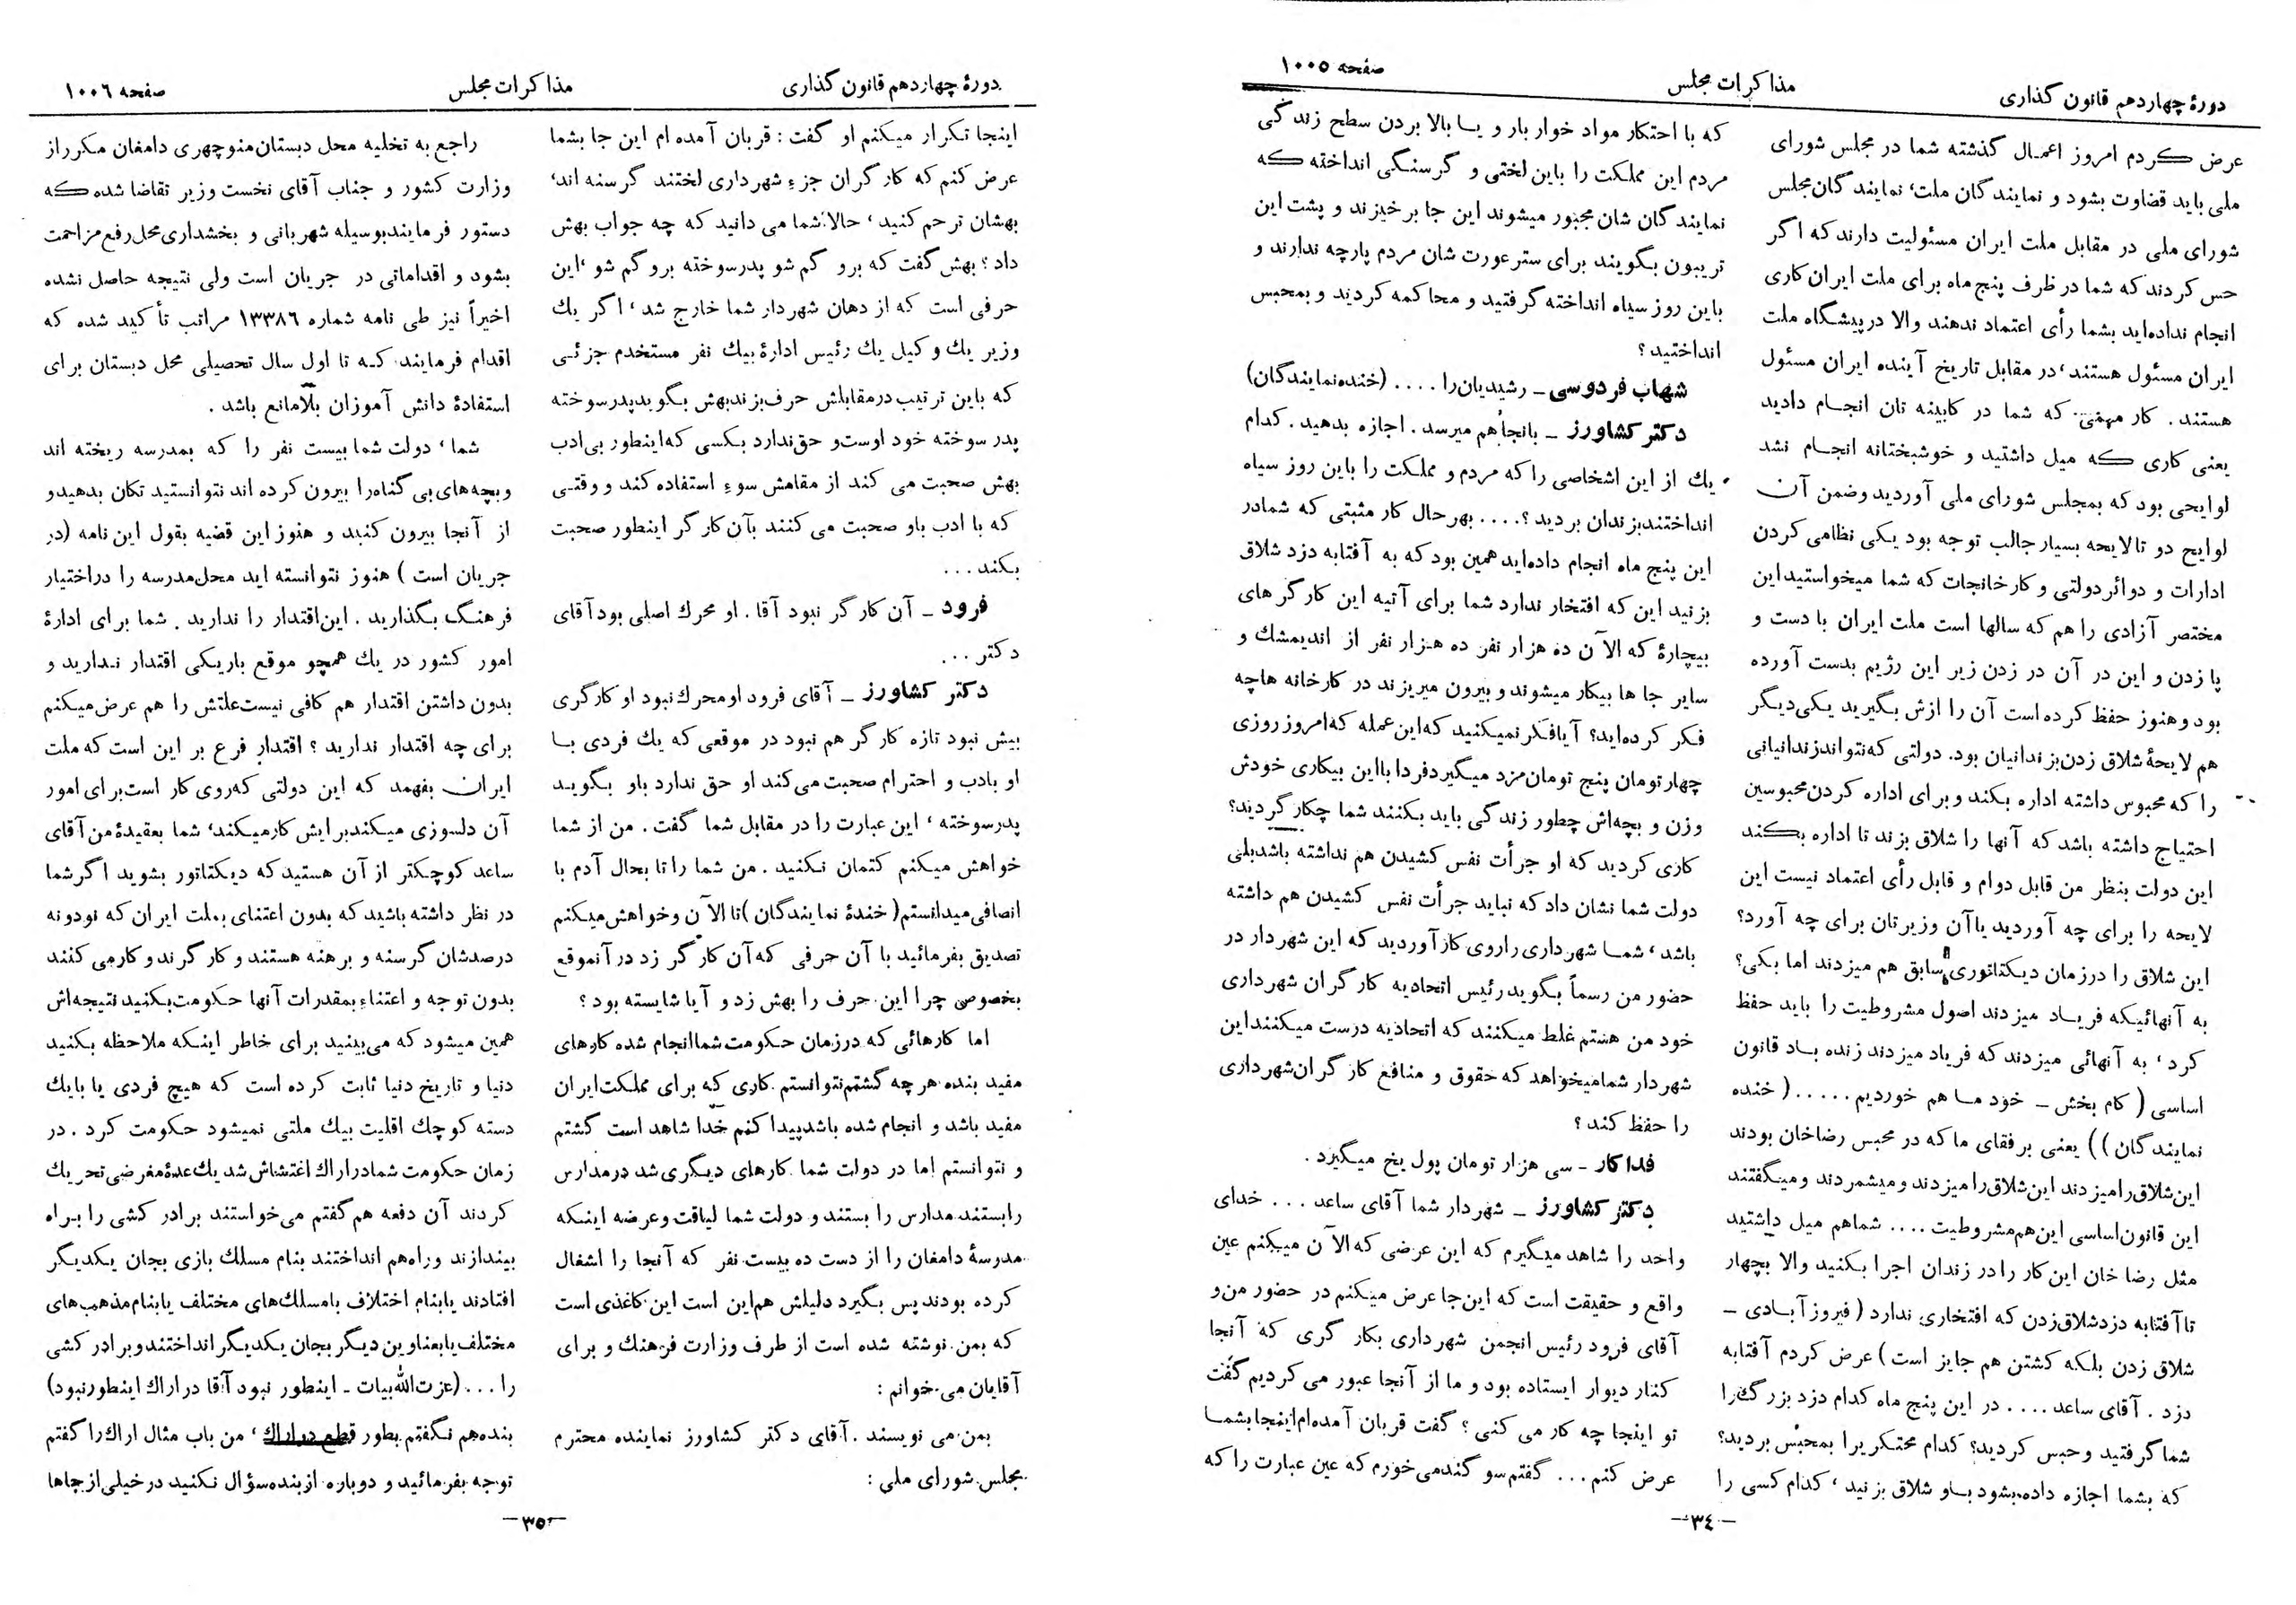 دورهٔ چهاردهم قانون گذاری
مذاکرات مجلس
صفحه ۱۰۰۵
عرض کردم امروز اعمال گذشته شما در مجلس شورای
ملی باید قضاوت بشود و نمایندگان ملت، نمایندگان مجلس
شورای ملی در مقابل ملت ایران مسئولیت دارند که اگر
حس کردند که شما در ظرف پنج ماه برای ملت ایران کاری
انجام نداده‌اید بشما رأی اعتماد ندهند والا در پیشگاه ملت
ایران مسئول هستند، در مقابل تاریخ آینده ایران مسئول
هستند. کار مهمی که شما در کابینه تان انجام دادید
یعنی کاری که میل داشتید و خوشبختانه انجام نشد
لوایحی بود که بمجلس شورای ملی آوردید وضمن آن
لوایح دو تا لایحه بسیار جالب توجه بود یکی نظامی کردن
ادارات و دوائر دولتی و کارخانجات که شما میخواستید این
مختصر آزادی را هم که سالها است ملت ایران با دست و
پا زدن و این در آن در زدن زیر این رژیم بدست آورده
بود و هنوز حفظ کرده است آن را ازش بگیرید یکی دیگر
هم لایحهٔ شلاق زدن بزندانیان بود. دولتی که نتواند زندانیانی
را که محبوس داشته اداره بکند و برای اداره کردن محبوسین
احتیاج داشته باشد که آنها را شلاق بزند تا اداره بکند
این دولت بنظر من قابل دوام و قابل رأی اعتماد نیست این
لایحه را برای چه آوردید یا آن وزیرتان برای چه آورد؟
این شلاق را در زمان دیکتاتوری سابق هم میزدند اما بکی؟
به آنهائیکه فریاد میزدند اصول مشروطیت را باید حفظ
کرد، به آنهائی میزدند که فریاد میزدند زنده باد قانون
اساسی (کام بخش ـ خود ما هم خوردیم ..... (خنده
نمایندگان)) یعنی برفقای ما که در محبس رضاخان بودند
این شلاق را میزدند این شلاق را میزدند و میشمردند و میگفتند
این قانون اساسی این هم مشروطیت .... شما هم میل داشتید
مثل رضا خان این کار را در زندان اجرا بکنید والا بچهار
تا آفتابه دزد شلاق زدن که افتخاری ندارد (فیروزآبادی ـ
شلاق زدن بلکه کشتن هم جایز است) عرض کردم آفتابه
دزد. آقای ساعد .... در این پنج ماه کدام دزد بزرگ را
شما گرفتید و حبس کردید؟ کدام محتکر یرا بمحبس بردید؟
که بشما اجازه داده بشود باو شلاق بزنید، کدام کسی را
که با احتکار مواد خوار بار و یا بالا بردن سطح زندگی
مردم این مملکت را باین لختی و گرسنگی انداخته که
نمایندگان شان مجبور میشوند این جا برخیزند و پشت این
تریبون بگویند برای ستر عورت شان مردم پارچه ندارند و
باین روز سیاه انداخته گرفتید و محاکمه کردید و بمحبس
انداختید؟
شهاب فردوسی ـ رشیدیان را .... (خنده نمایندگان)
دکتر کشاورز ـ بانجا هم میرسد. اجازه بدهید. کدام
یك از این اشخاصی را که مردم و مملکت را باین روز سیاه
انداختند بزندان بردید؟ .... بهر حال کار مثبتی که شما در
این پنج ماه انجام داده‌اید همین بود که به آفتابه دزد شلاق
بزنید این که افتخار ندارد شما برای آتیه این کارگرهای
بیچارهٔ که الآن ده هزار نفر ده هزار نفر از اندیمشك و
سایر جا ها بیکار میشوند و بیرون میریزند در کارخانه ها چه
فکر کرده‌اید؟ آیا فکر نمیکنید که این عمله که امروز روزی
چهار تومان پنج تومان مزد میگیرد فردا با این بیکاری خودش
وزن و بچه‌اش چطور زندگی باید بکنند شما چکار کردید؟
کاری کردید که او جرأت نفس کشیدن هم نداشته باشد بلی
دولت شما نشان داد که نباید جرأت نفس کشیدن هم داشته
باشد، شما شهرداری را روی کار آوردید که این شهردار در
حضور من رسماً بگوید رئیس اتحادیه کارگران شهرداری
خود من هستم غلط میکنند که اتحادیه درست میکنند این
شهردار شما میخواهد که حقوق و منافع کارگران شهرداری
را حفظ کند؟
فداکار ـ سی هزار تومان پول یخ میگیرد.
دکتر کشاورز ـ شهردار شما آقای ساعد ... خدای
واحد را شاهد میگیرم که این عرضی که الآن میکنم عین
واقع و حقیقت است که این جا عرض میکنم در حضور من و
آقای فرود رئیس انجمن شهرداری بکارگری که آنجا
کنار دیوار ایستاده بود و ما از آنجا عبور می کردیم گفت
تو اینجا چه کار می کنی؟ گفت قربان آمده‌ام اینجا بشما
عرض کنم ... گفتم سوگند می خورم که عین عبارت را که
ـ ۳٤ ـ
دورهٔ چهاردهم قانون گذاری
مذاکرات مجلس
صفحه ۱۰۰٦
اینجا تکرار میکنم او گفت: قربان آمده ام این جا بشما
عرض کنم که کارگران جزء شهرداری لختند گرسنه اند،
بهشان ترحم کنید، حالا شما می دانید که چه جواب بهش
داد؟ بهش گفت که برو گم شو پدرسوخته برو گم شو، این
حرفی است که از دهان شهردار شما خارج شد، اگر یك
وزیر یك وکیل یك رئیس ادارهٔ بیك نفر مستخدم جزئی
که باین ترتیب در مقابلش حرف بزند بهش بگوید پدرسوخته
پدر سوخته خود اوست و حق ندارد بکسی که اینطور بی ادب
بهش صحبت می کند از مقامش سوء استفاده کند و وقتی
که با ادب باو صحبت می کنند بآن کارگر اینطور صحبت
بکند ...
فرود ـ آن کارگر نبود آقا. او محرك اصلی بود آقای
دکتر ...
دکتر کشاورز ـ آقای فرود او محرك نبود او کارگری
بیش نبود تازه کارگر هم نبود در موقعی که یك فردی با
او بادب و احترام صحبت می کند او حق ندارد باو بگوید
پدرسوخته، این عبارت را در مقابل شما گفت. من از شما
خواهش میکنم کتمان نکنید. من شما را تا بحال آدم با
انصافی میدانستم (خندهٔ نمایندگان) تا الآن و خواهش میکنم
تصدیق بفرمائید با آن حرفی که آن کارگر زد در آنموقع
بخصوصی چرا این حرف را بهش زد و آیا شایسته بود؟
اما کارهائی که در زمان حکومت شما انجام شده کارهای
مفید بنده هر چه گشتم نتوانستم کاری که برای مملکت ایران
مفید باشد و انجام شده باشد پیدا کنم خدا شاهد است گشتم
و نتوانستم اما در دولت شما کارهای دیگری شد در مدارس
را بستند مدارس را بستند و دولت شما لیاقت و عرضه اینکه
مدرسهٔ دامغان را از دست ده بیست نفر که آنجا را اشغال
کرده بودند پس بگیرد دلیلش هم این است این کاغذی است
که بمن نوشته شده است از طرف وزارت فرهنك و برای
آقایان می خوانم:
بمن می نویسند. آقای دکتر کشاورز نماینده محترم
مجلس شورای ملی:
راجع به تخلیه محل دبستان منوچهری دامغان مکرر از
وزارت کشور و جناب آقای نخست وزیر تقاضا شده که
دستور فرمایند بوسیله شهربانی و بخشداری محل رفع مزاحمت
بشود و اقداماتی در جریان است ولی نتیجه حاصل نشده
اخیراً نیز طی نامه شماره ۱۳۳۸٦ مراتب تأکید شده که
اقدام فرمایند که تا اول سال تحصیلی محل دبستان برای
استفادهٔ دانش آموزان بلامانع باشد.
شما، دولت شما بیست نفر را که بمدرسه ریخته اند
و بچه های بی گناه را بیرون کرده اند نتوانستید تکان بدهید و
از آنجا بیرون کنید و هنوز این قضیه بقول این نامه (در
جریان است) هنوز نتوانسته اید محل مدرسه را در اختیار
فرهنگ بگذارید. این اقتدار را ندارید. شما برای ادارهٔ
امور کشور در یك همچو موقع باریکی اقتدار ندارید و
بدون داشتن اقتدار هم کافی نیست علتش را هم عرض میکنم
برای چه اقتدار ندارید؟ اقتدار فرع بر این است که ملت
ایران بفهمد که این دولتی که روی کار است برای امور
آن دلسوزی میکند برایش کار میکند، شما بعقیدهٔ من آقای
ساعد کوچکتر از آن هستید که دیکتاتور بشوید اگر شما
در نظر داشته باشید که بدون اعتنای بملت ایران که نود و نه
درصدشان گرسنه و برهنه هستند و کارگرند و کار می کنند
بدون توجه و اعتناء بمقدرات آنها حکومت بکنید نتیجه‌اش
همین میشود که می بینید برای خاطر اینکه ملاحظه بکنید
دنیا و تاریخ دنیا ثابت کرده است که هیچ فردی یا با یك
دسته کوچك اقلیت بیك ملتی نمیشود حکومت کرد. در
زمان حکومت شما در اراك اغتشاش شد یك عدهٔ مغرضی تحریك
کردند آن دفعه هم گفتم می خواستند برادر کشی را براه
بیندازند و راه هم انداختند بنام مسلك بازی بجان یکدیگر
افتادند یا بنام اختلاف با مسلك‌های مختلف یا بنام مذهب‌های
مختلف یا بعناوین دیگر بجان یکدیگر انداختند و برادر کشی
را ... (عزت‌الله بیات ـ اینطور نبود آقا در اراك اینطور نبود)
بنده هم نگفتم بطور قطع در اراك، من باب مثال اراك را گفتم
توجه بفرمائید و دوباره از بنده سؤال نکنید در خیلی از جاها
ـ ۳٥ ـ